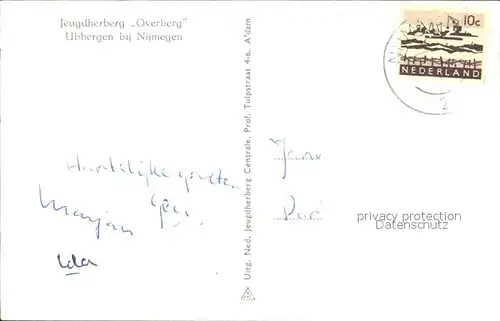 Jeugdherberg „Overberg"
Ubbergen bij Nijmegen
10c
NEDERLAND
Uitg. Ned. Jeugdherberg Centrale. Prof. Tulpstraat 4-6. A'dam
Hartelijke groeten
Marjan
Ida
privacy protection
Datenschutz